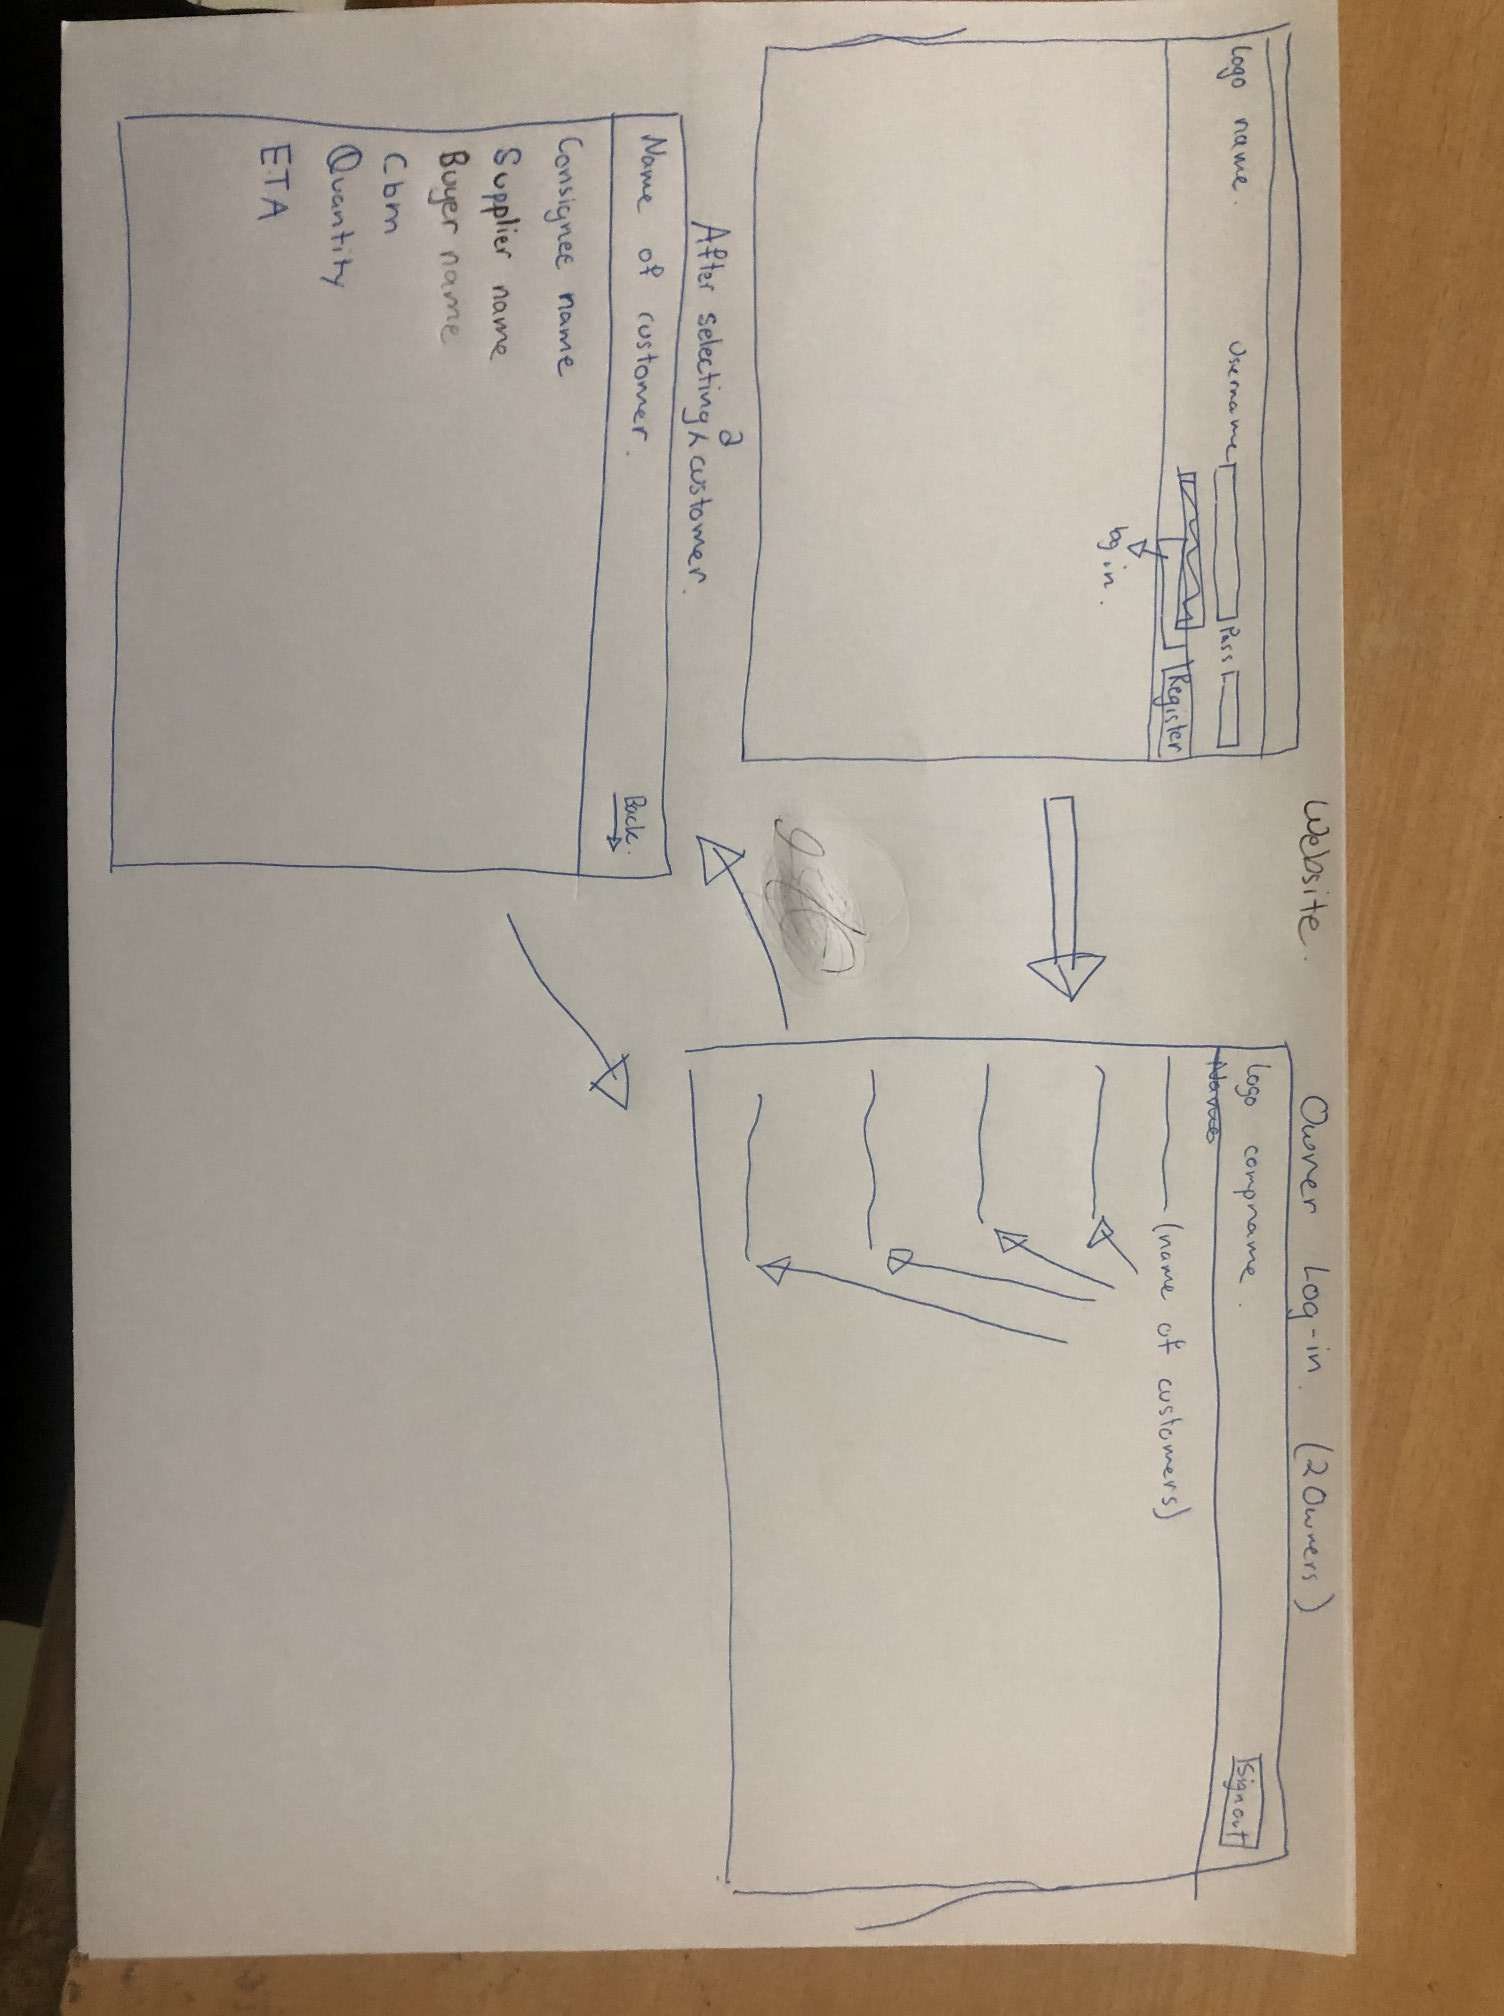 Website.
Logo name.
Username
Pass
Register
log in.
Owner Log-in. (2 Owners)
Logo compname.
Sign out
Name
(name of customers)
After selecting a customer.
Name of customer.
Back.
Consignee name
Supplier name
Buyer name
Cbm
Quantity
ETA